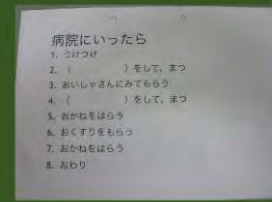 病院にいったら
1. うけつけ
2. (　　　　)をして、まつ
3. おいしゃさんにみてもらう
4. (　　　　)をして、まつ
5. おかねをはらう
6. おくすりをもらう
7. おかねをはらう
8. おわり